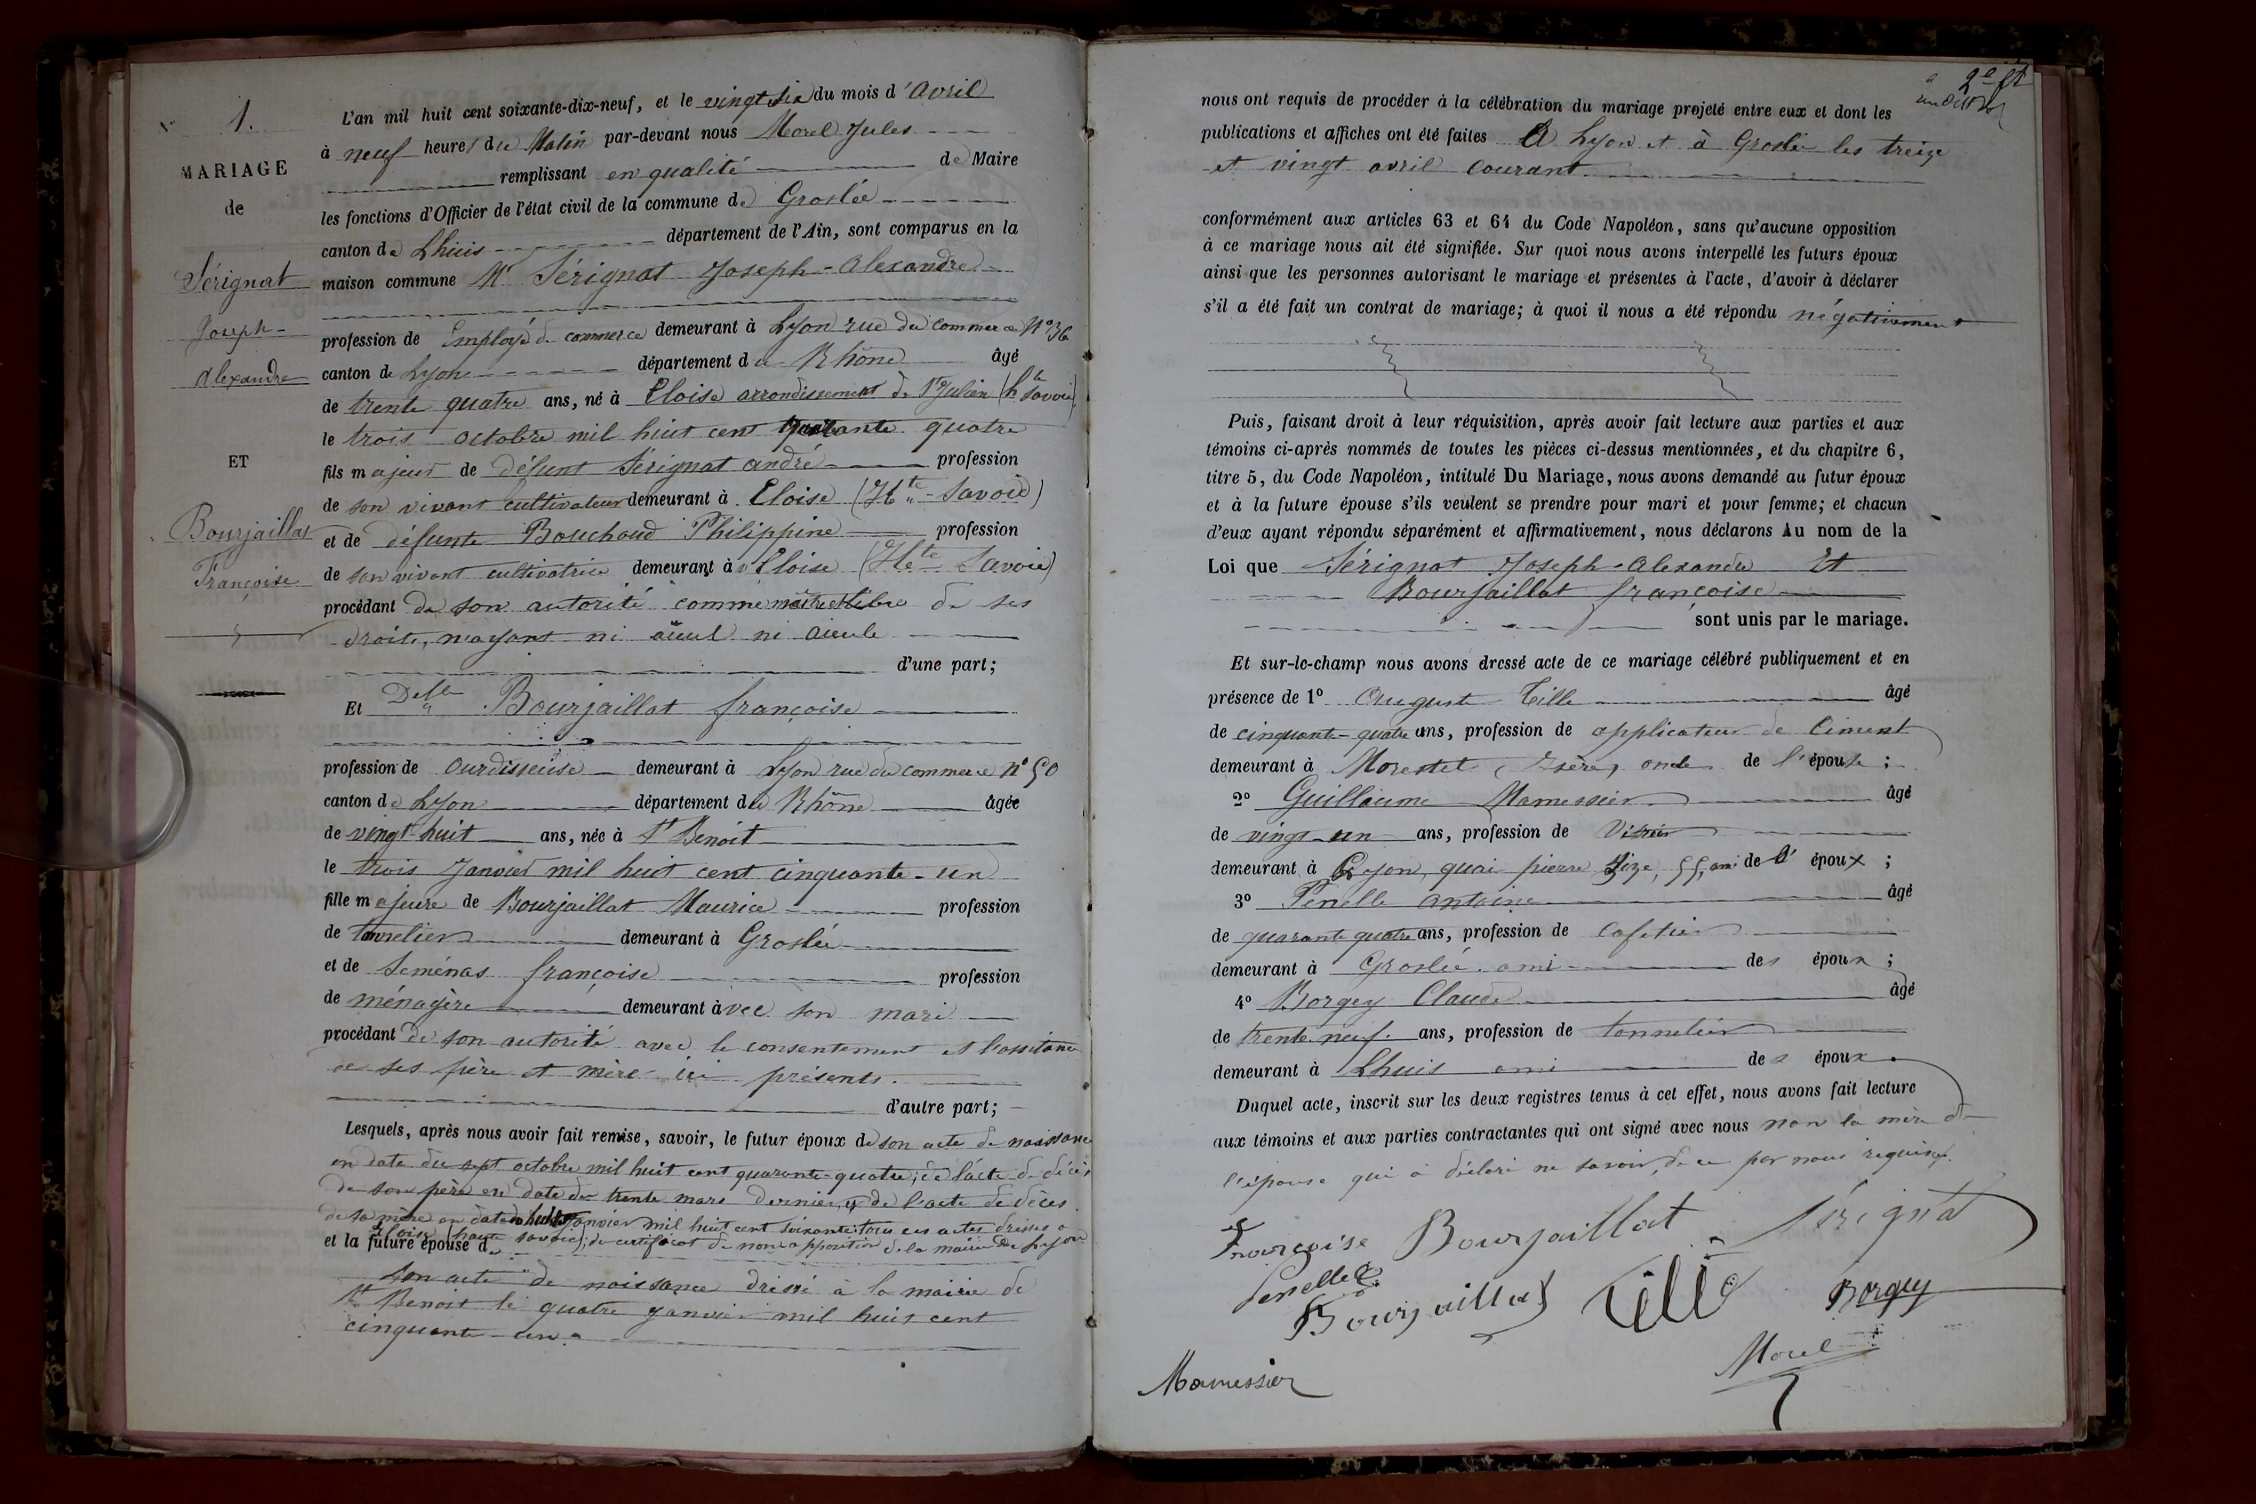 N° 1.
MARIAGE
de
Sérignat
Joseph-
Alexandre
ET
Bourjaillat
Françoise
L'an mil huit cent soixante-dix-neuf, et le vingt six du mois d'avril
à neuf heures du Matin par-devant nous Morel Jules
remplissant en qualité de Maire
les fonctions d'Officier de l'état civil de la commune de Groslée
canton de Lhuis département de l'Ain, sont comparus en la
maison commune Mr Sérignat Joseph-Alexandre
profession de Employé de commerce demeurant à Lyon rue du commerce N° 36
canton de Lyon département du Rhône âgé
de trente quatre ans, né à Eloise arrondissement de St Julien (hte Savoie)
le trois octobre mil huit cent quarante quatre
fils majeur de défunt Sérignat andré profession
de son vivant cultivateur demeurant à Eloise (Hte-Savoie)
et de défunte Bouchoud Philippine profession
de son vivant cultivatrice demeurant à Eloise (Hte Savoie)
procédant de son autorité comme maître et libre de ses
droits, n'ayant ni aïeul ni aieule
d'une part;
Et Delle Bourjaillat françoise
profession de Ourdisseuse demeurant à Lyon rue du commerce n° 50
canton de Lyon département du Rhône âgée
de vingt-huit ans, née à St Benoît
le trois Janvier mil huit cent cinquante-un
fille majeure de Bourjaillat Maurice profession
de tonnelier demeurant à Groslée
et de Seménas françoise profession
de ménagère demeurant àvec son mari
procédant de son autorité avec le consentement et l'assistance
de ses père et mère ici présents.
d'autre part;
Lesquels, après nous avoir fait remise, savoir, le futur époux de son acte de naissance
en date du sept octobre mil huit cent quarante-quatre; de l'acte de décès
de son père en date du trente mars dernier, et de l'acte de décès
de sa mère en date du huit janvier mil huit cent soixante trois ces actes dressés à
Eloise (haute savoie); du certificat de non opposition de la mairie de Lyon
et la future épouse de
son acte de naissance dressé à la mairie de
St Benoit le quatre janvier mil huit cent
cinquante-un.
2e ft
nous ont requis de procéder à la célébration du mariage projeté entre eux et dont les
publications et affiches ont été faites A Lyon et à Groslée les treize
et vingt avril courant
conformément aux articles 63 et 64 du Code Napoléon, sans qu'aucune opposition
à ce mariage nous ait été signifiée. Sur quoi nous avons interpellé les futurs époux
ainsi que les personnes autorisant le mariage et présentes à l'acte, d'avoir à déclarer
s'il a été fait un contrat de mariage; à quoi il nous a été répondu négativement
Puis, faisant droit à leur réquisition, après avoir fait lecture aux parties et aux
témoins ci-après nommés de toutes les pièces ci-dessus mentionnées, et du chapitre 6,
titre 5, du Code Napoléon, intitulé Du Mariage, nous avons demandé au futur époux
et à la future épouse s'ils veulent se prendre pour mari et pour femme; et chacun
d'eux ayant répondu séparément et affirmativement, nous déclarons Au nom de la
Loi que Sérignat Joseph-Alexandre Et
Bourjaillat françoise
sont unis par le mariage.
Et sur-le-champ nous avons dressé acte de ce mariage célébré publiquement et en
présence de 1° August Tille âgé
de cinquante-quatre ans, profession de applicateur de Ciment
demeurant à Morestel (Isère) oncle de l'épouse;
2° Guillaume Mamessier âgé
de vingt-un ans, profession de Vitrier
demeurant à Lyon, quai pierre Size, 55, ami de l'époux;
3° Penelle Antoine âgé
de quarante quatre ans, profession de Cafetier
demeurant à Groslée ami des époux;
4° Borgey Claude âgé
de trente neuf ans, profession de tonnelier
demeurant à Lhuis ami des époux.
Duquel acte, inscrit sur les deux registres tenus à cet effet, nous avons fait lecture
aux témoins et aux parties contractantes qui ont signé avec nous non la mère de
l'épouse qui a déclaré ne savoir, de ce par nous requise.
Françoise Bourjaillat Sérignat
Penelle
Bourjaillat Tille Borgey
Morel
Mamessier